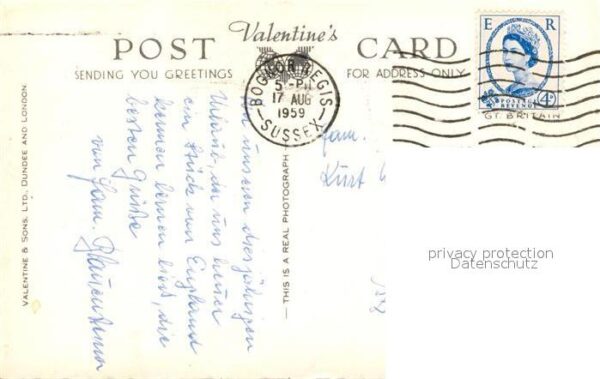 Valentine's
POST CARD
SENDING YOU GREETINGS FOR ADDRESS ONLY
E R
POSTAGE
REVENUE
4D
BOGNOR REGIS
5-PM
17 AUG
1959
SUSSEX
GT. BRITAIN
VALENTINE & SONS, LTD., DUNDEE AND LONDON.
THIS IS A REAL PHOTOGRAPH
unseren diesjährigen
Urlaub der uns heuer
ein Stück von England
kennen lernen ließ, die
besten Grüße
von Fam.
Fam.
Kurt
privacy protection
Datenschutz